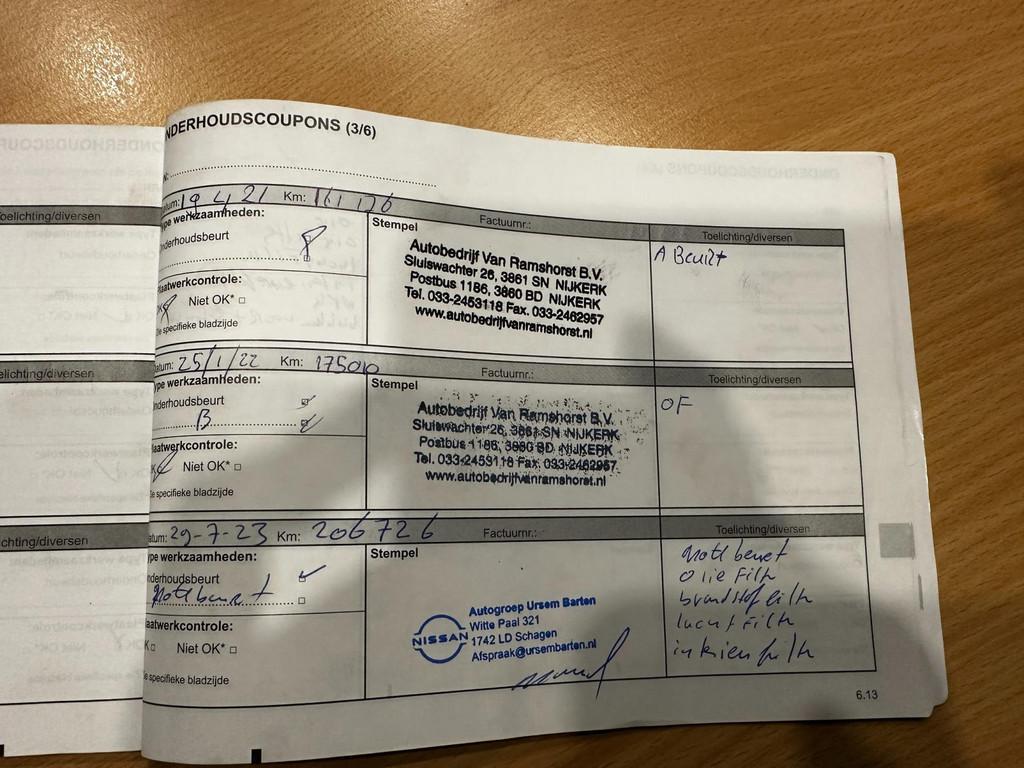 NDERHOUDSCOUPONS (3/6)
oelichting/diversen
atum: 19 4 21 Km: 161 176
ype werkzaamheden:
nderhoudsbeurt
laatwerkcontrole:
Niet OK*
ie specifieke bladzijde
Stempel Factuurnr.:
Autobedrijf Van Ramshorst B.V.
Sluiswachter 26, 3861 SN NIJKERK
Postbus 1186, 3860 BD NIJKERK
Tel. 033-2453118 Fax. 033-2462957
www.autobedrijfvanramshorst.nl
Toelichting/diversen
A Beurt
elichting/diversen
atum: 25/1/22 Km: 175010
ype werkzaamheden:
nderhoudsbeurt
B
aatwerkcontrole:
Niet OK*
ie specifieke bladzijde
Stempel Factuurnr.:
Autobedrijf Van Ramshorst B.V.
Sluiswachter 26, 3861 SN NIJKERK
Postbus 1186, 3860 BD NIJKERK
Tel. 033-2453118 Fax. 033-2462957
www.autobedrijfvanramshorst.nl
Toelichting/diversen
OF
chting/diversen
atum: 29-7-23 Km: 206726
ype werkzaamheden:
nderhoudsbeurt
grote beurt
aatwerkcontrole:
K Niet OK*
e specifieke bladzijde
Stempel Factuurnr.:
NISSAN
Autogroep Ursem Barten
Witte Paal 321
1742 LD Schagen
Afspraak@ursembarten.nl
Toelichting/diversen
grote beurt
olie Filtr
brandstof filtr
lucht Filtr
interieu filtr
6.13